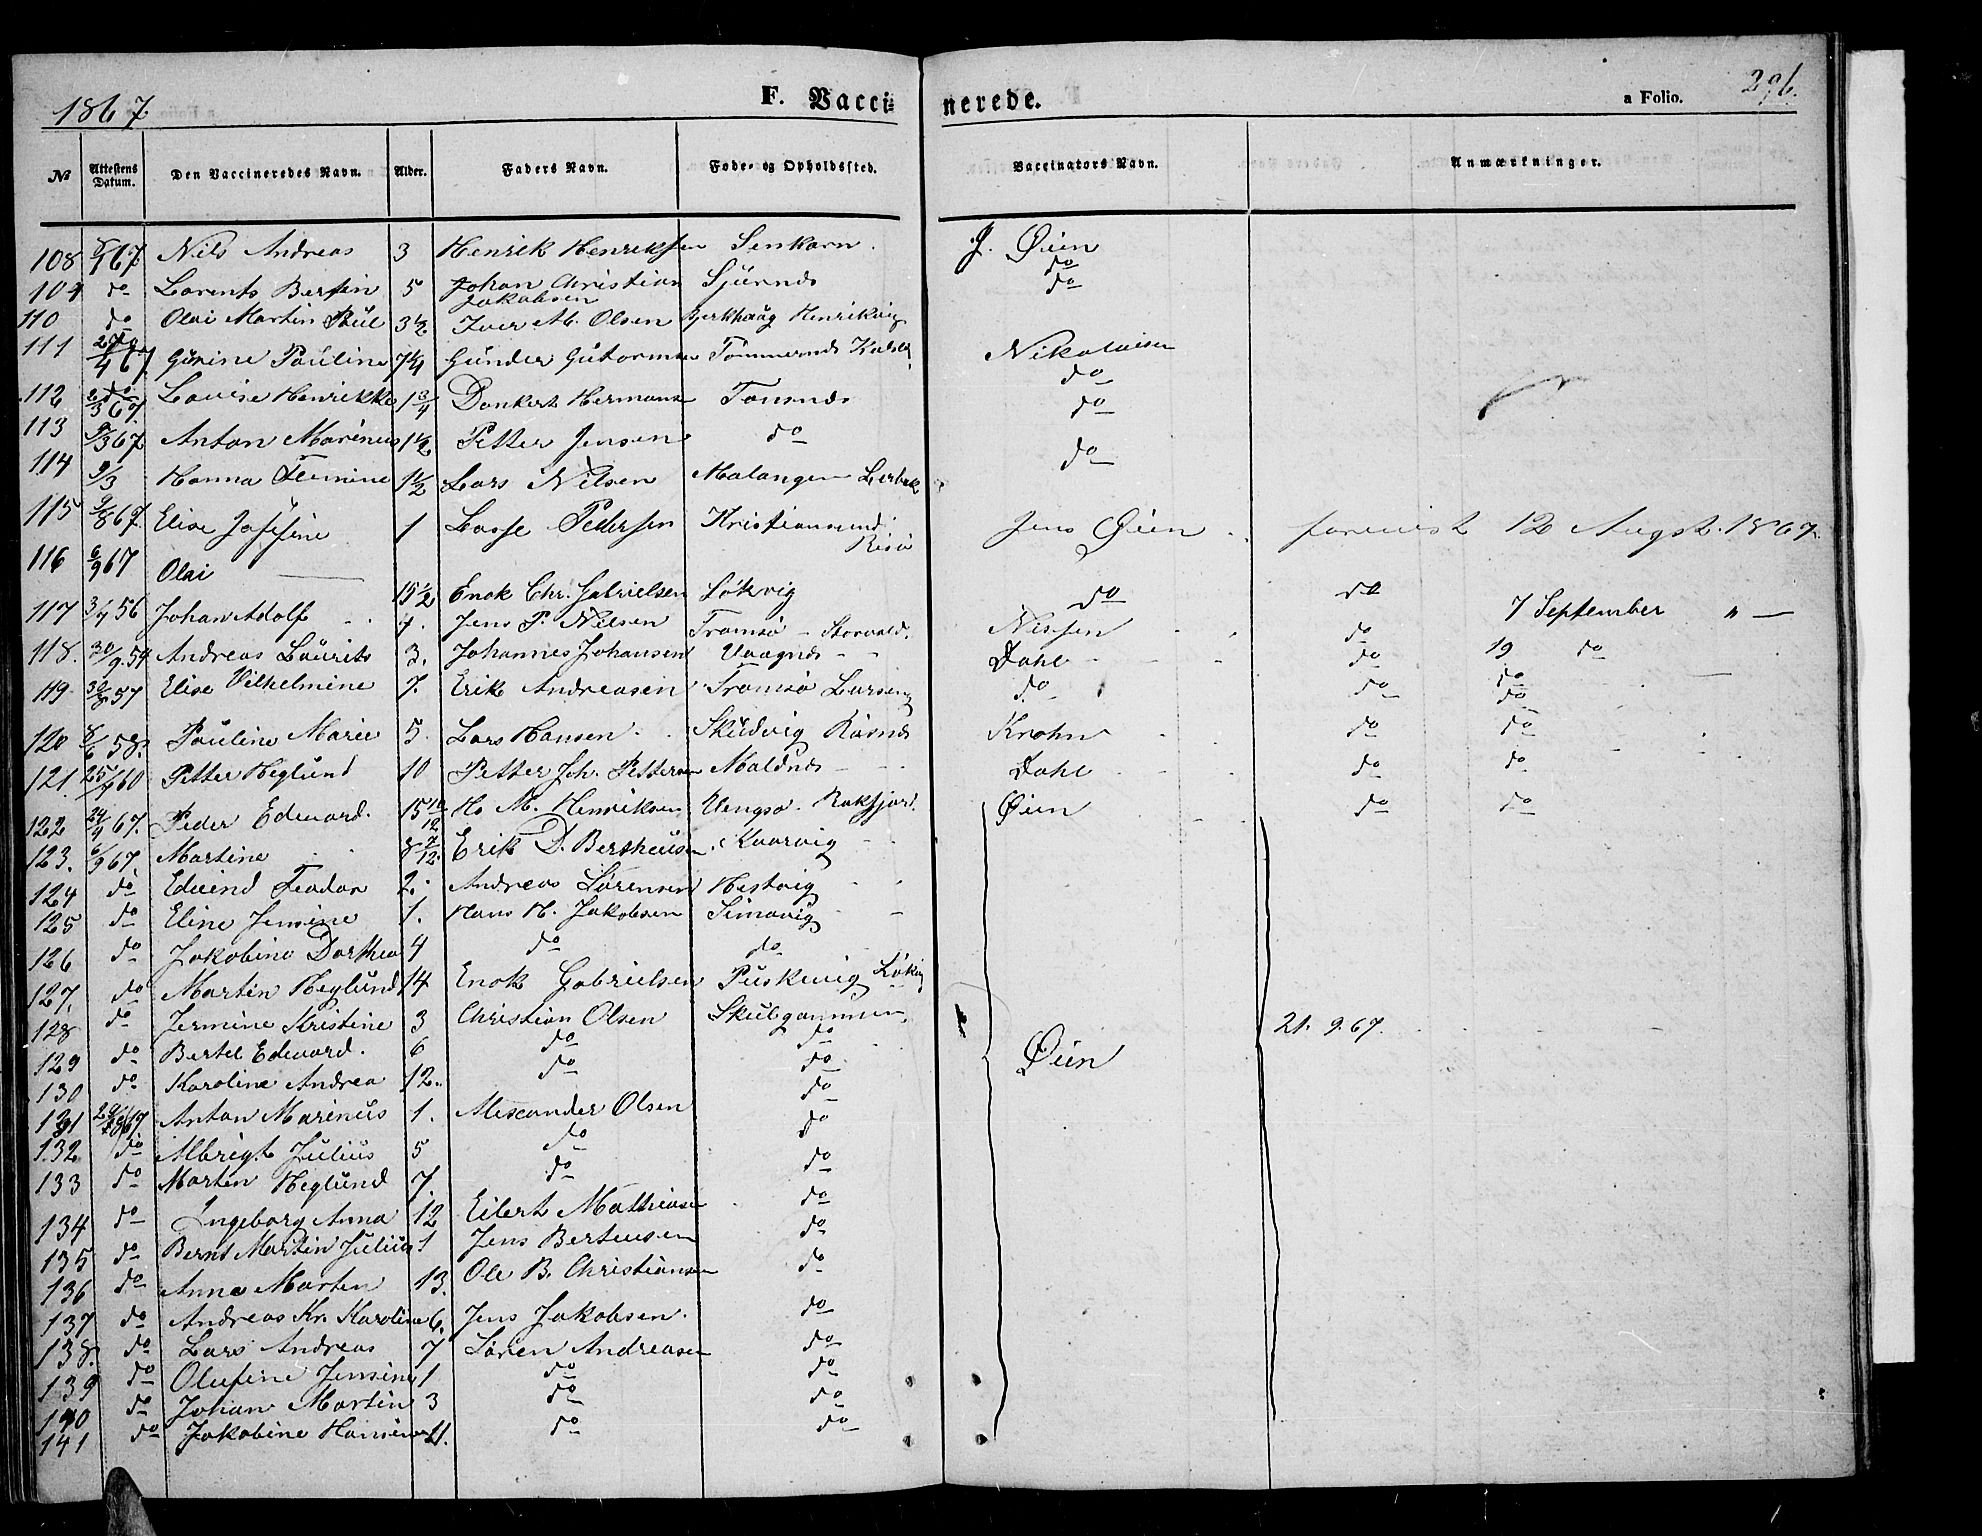 1867.
F. Vacci-
nerede.
a Folio.
296.
№ Attestens Datum. Den Vaccineredes Navn. Alder. Faders Navn. Føde- og Opholdssted. Vaccinators Navn. Anmærkninger.
108 67. Nils Andreas 3 Henrik Henriksen J. Øien
109 do Lorents Bersvin 5 Johan Christian Jakobsen do
110 do Olai Martin 3 1/2 Iver M. Olsen do
111 Gurine Pauline 7 1/4 Gunder Gutormsen Nikolaisen
112 Lovise Henrikke 1 3/4 Donkert Hermans Tonsnes do
113 Anton Marinus 1 1/2 Petter Jensen do do
114 9/3 Hanna 1 1/2 Lars Nilsen Malangen do
115 9/8 67. Elise Josefine 1 Lasse Pedersen Kristiansund Risø Jens Øien forevist 12 Augst. 1867.
116 6/9 67 Olai 15 1/2 Enok Chr. Gabrielsen Løkvig do do 7 September " —
117 56 Johan Adolf Jens P. Nilsen Tromsø Nissen do 19 do
118. 30/9.54 Andreas Laurits 3. Johannes Johansen Vaagnes Dahl do do
119. 57 Elise Vilhelmine 7. Erik Andreasen Tromsø do do do
120 8/6 58. Pauline Marie 5. Lars Hansen Skudvig Krohn do do
121. 60 Petter Heglund 10 Petter Joh. Pettersen Maldnes Dahl do do
122 67. Peder Edevard. 15 10/12 H. M. Henriksen Vengsø Øien do do
123. 6/9 67. Martine 8 Erik D. Bertheusen Kvarvig
124 do Edvind Teodor 2. Andreas Sørensen Hestvig
125 do Eline Jensine 1. Hans H. Jakobsen Simavig
126 do Jakobine Dorthea 4 do do
127. do Martin Heglund 14 Enok Gabrielsen
128 do Jermine Kristine 3 Christian Olsen Skulgammen 21. 9. 67.
129 do Bertel Edevard. 6 do do Øien
130 do Karoline Andrea 12. do do
131 Anton Marinus 1. Alexander Olsen do
132 do Albrigt Julius 5 do do
133 do Morten Heglund 7. do do
134 do Ingeborg Anna 12 Eilert Mathiasen do
135 do Bernt Martin Julius 1 Jens Berteusen do
136 do Anne Marten 13. Ole B. Christiansen do
137 do Andreas Kr. Karoline 6. Jens Jakobsen. do
138. do Lars Andreas 7 Søren Andreasen do
139 do Olufine Jensine 1 do do
140 do Johan Martin 3 do do
141 do Jakobine Hansine 11. do do